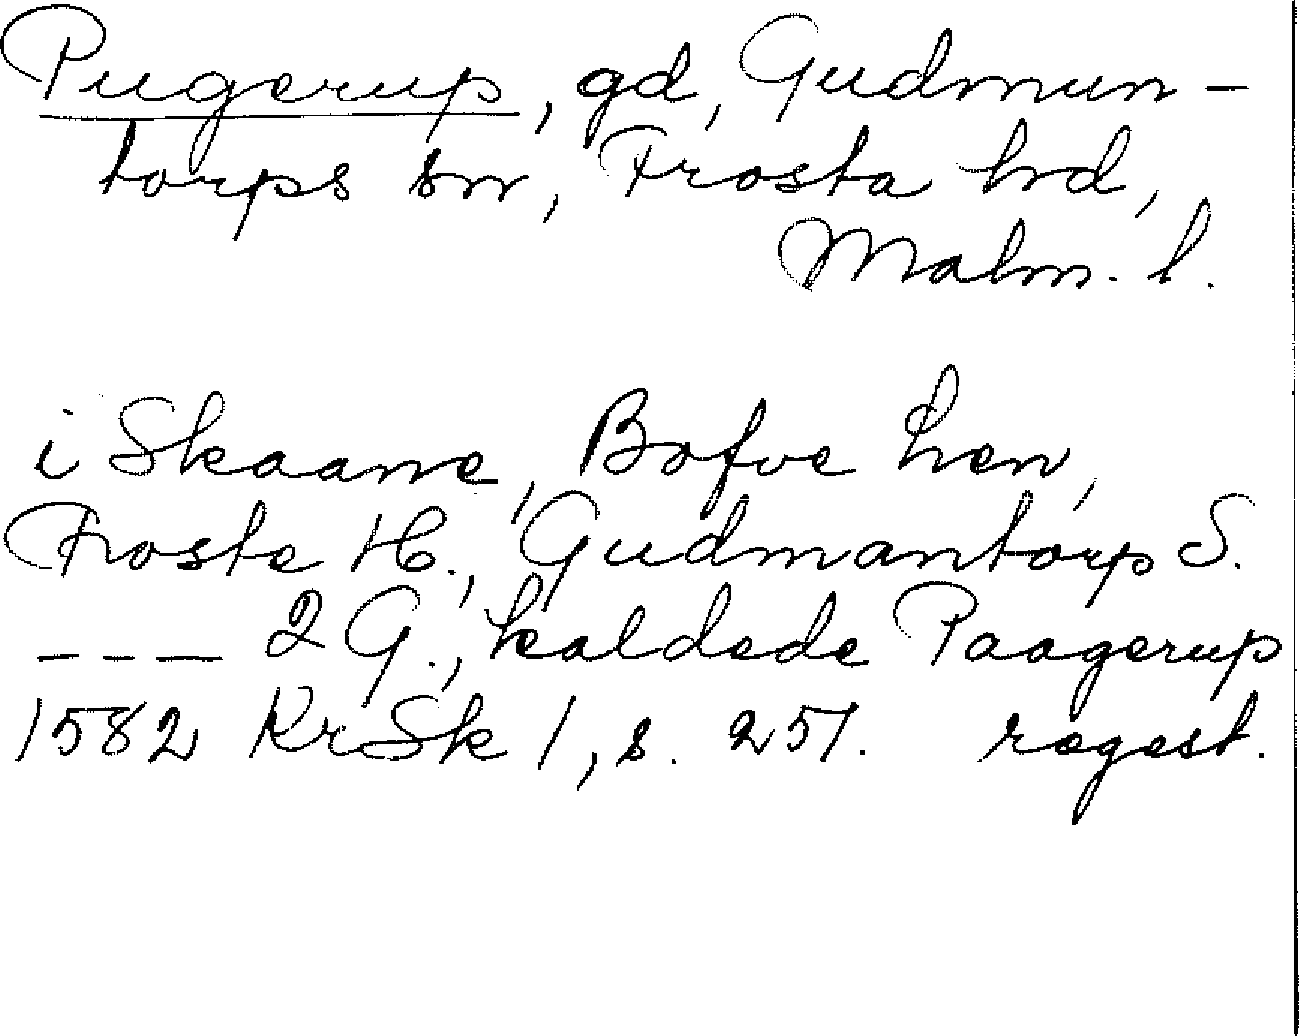 Pugerup, gd, Gudmun-
torps sn, Frosta hd,
Malm. l.
i Skaane, Bofve hen,
Froste H., Gudmantorp S.
--- 2 G., kaldede Paagerup
1582 KrSk 1, s. 251. regest.